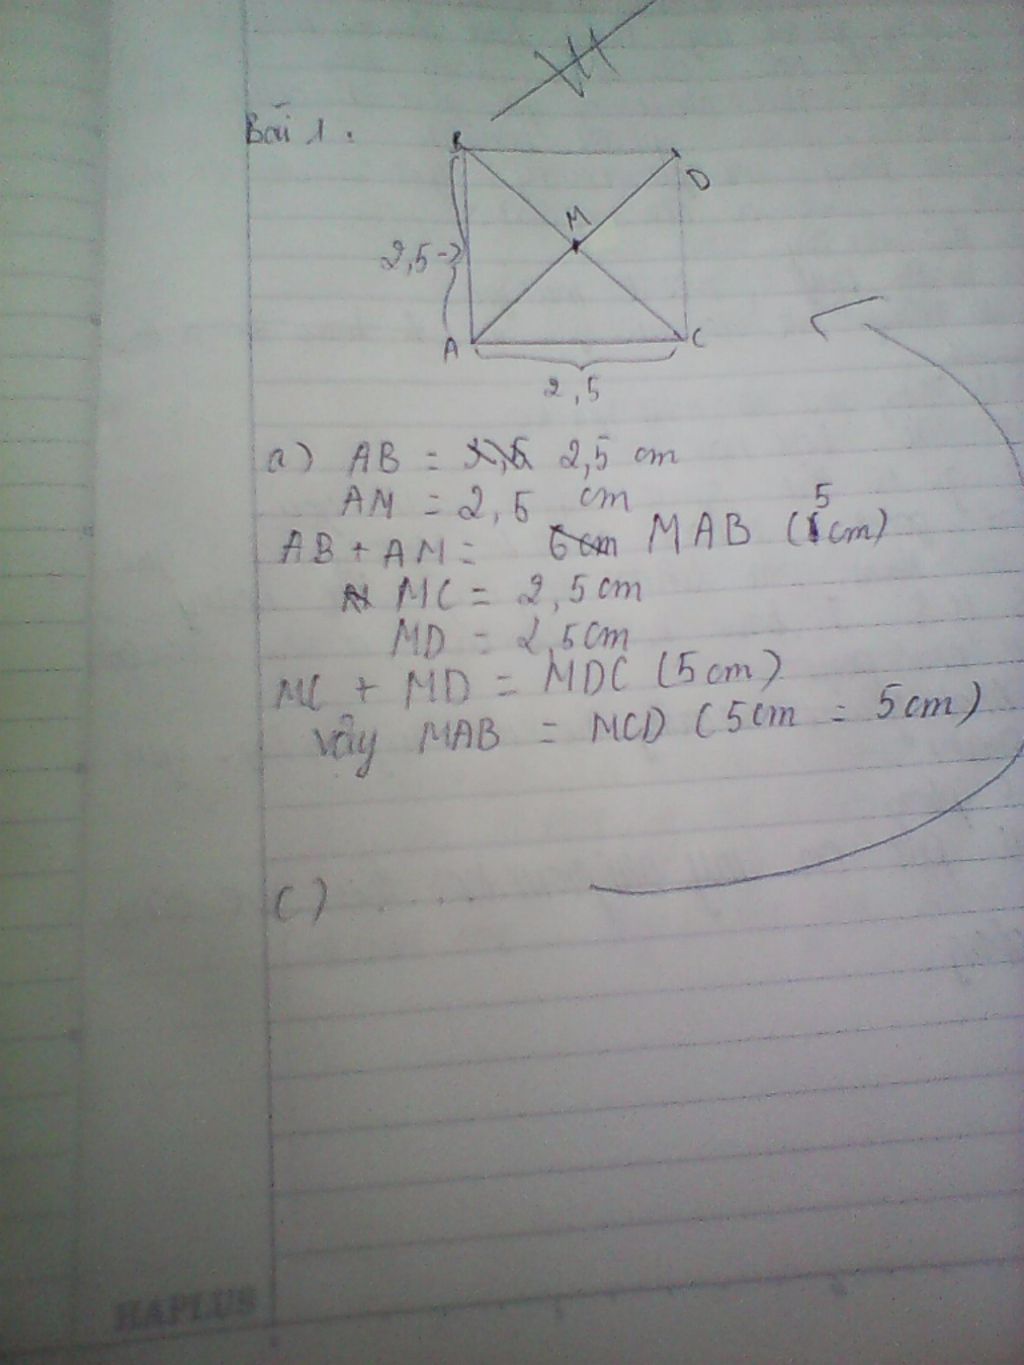 Bài 1.
B
D
M
2,5
A
C
2,5
a) AB = 2,5 cm
AM = 2,5 cm
AB + AM = 6cm MAB (5cm)
MC = 2,5cm
MD = 2,5cm
MC + MD = MDC (5cm)
Vậy MAB = MCD (5cm = 5cm)
c) . . . . .
HAPLUS